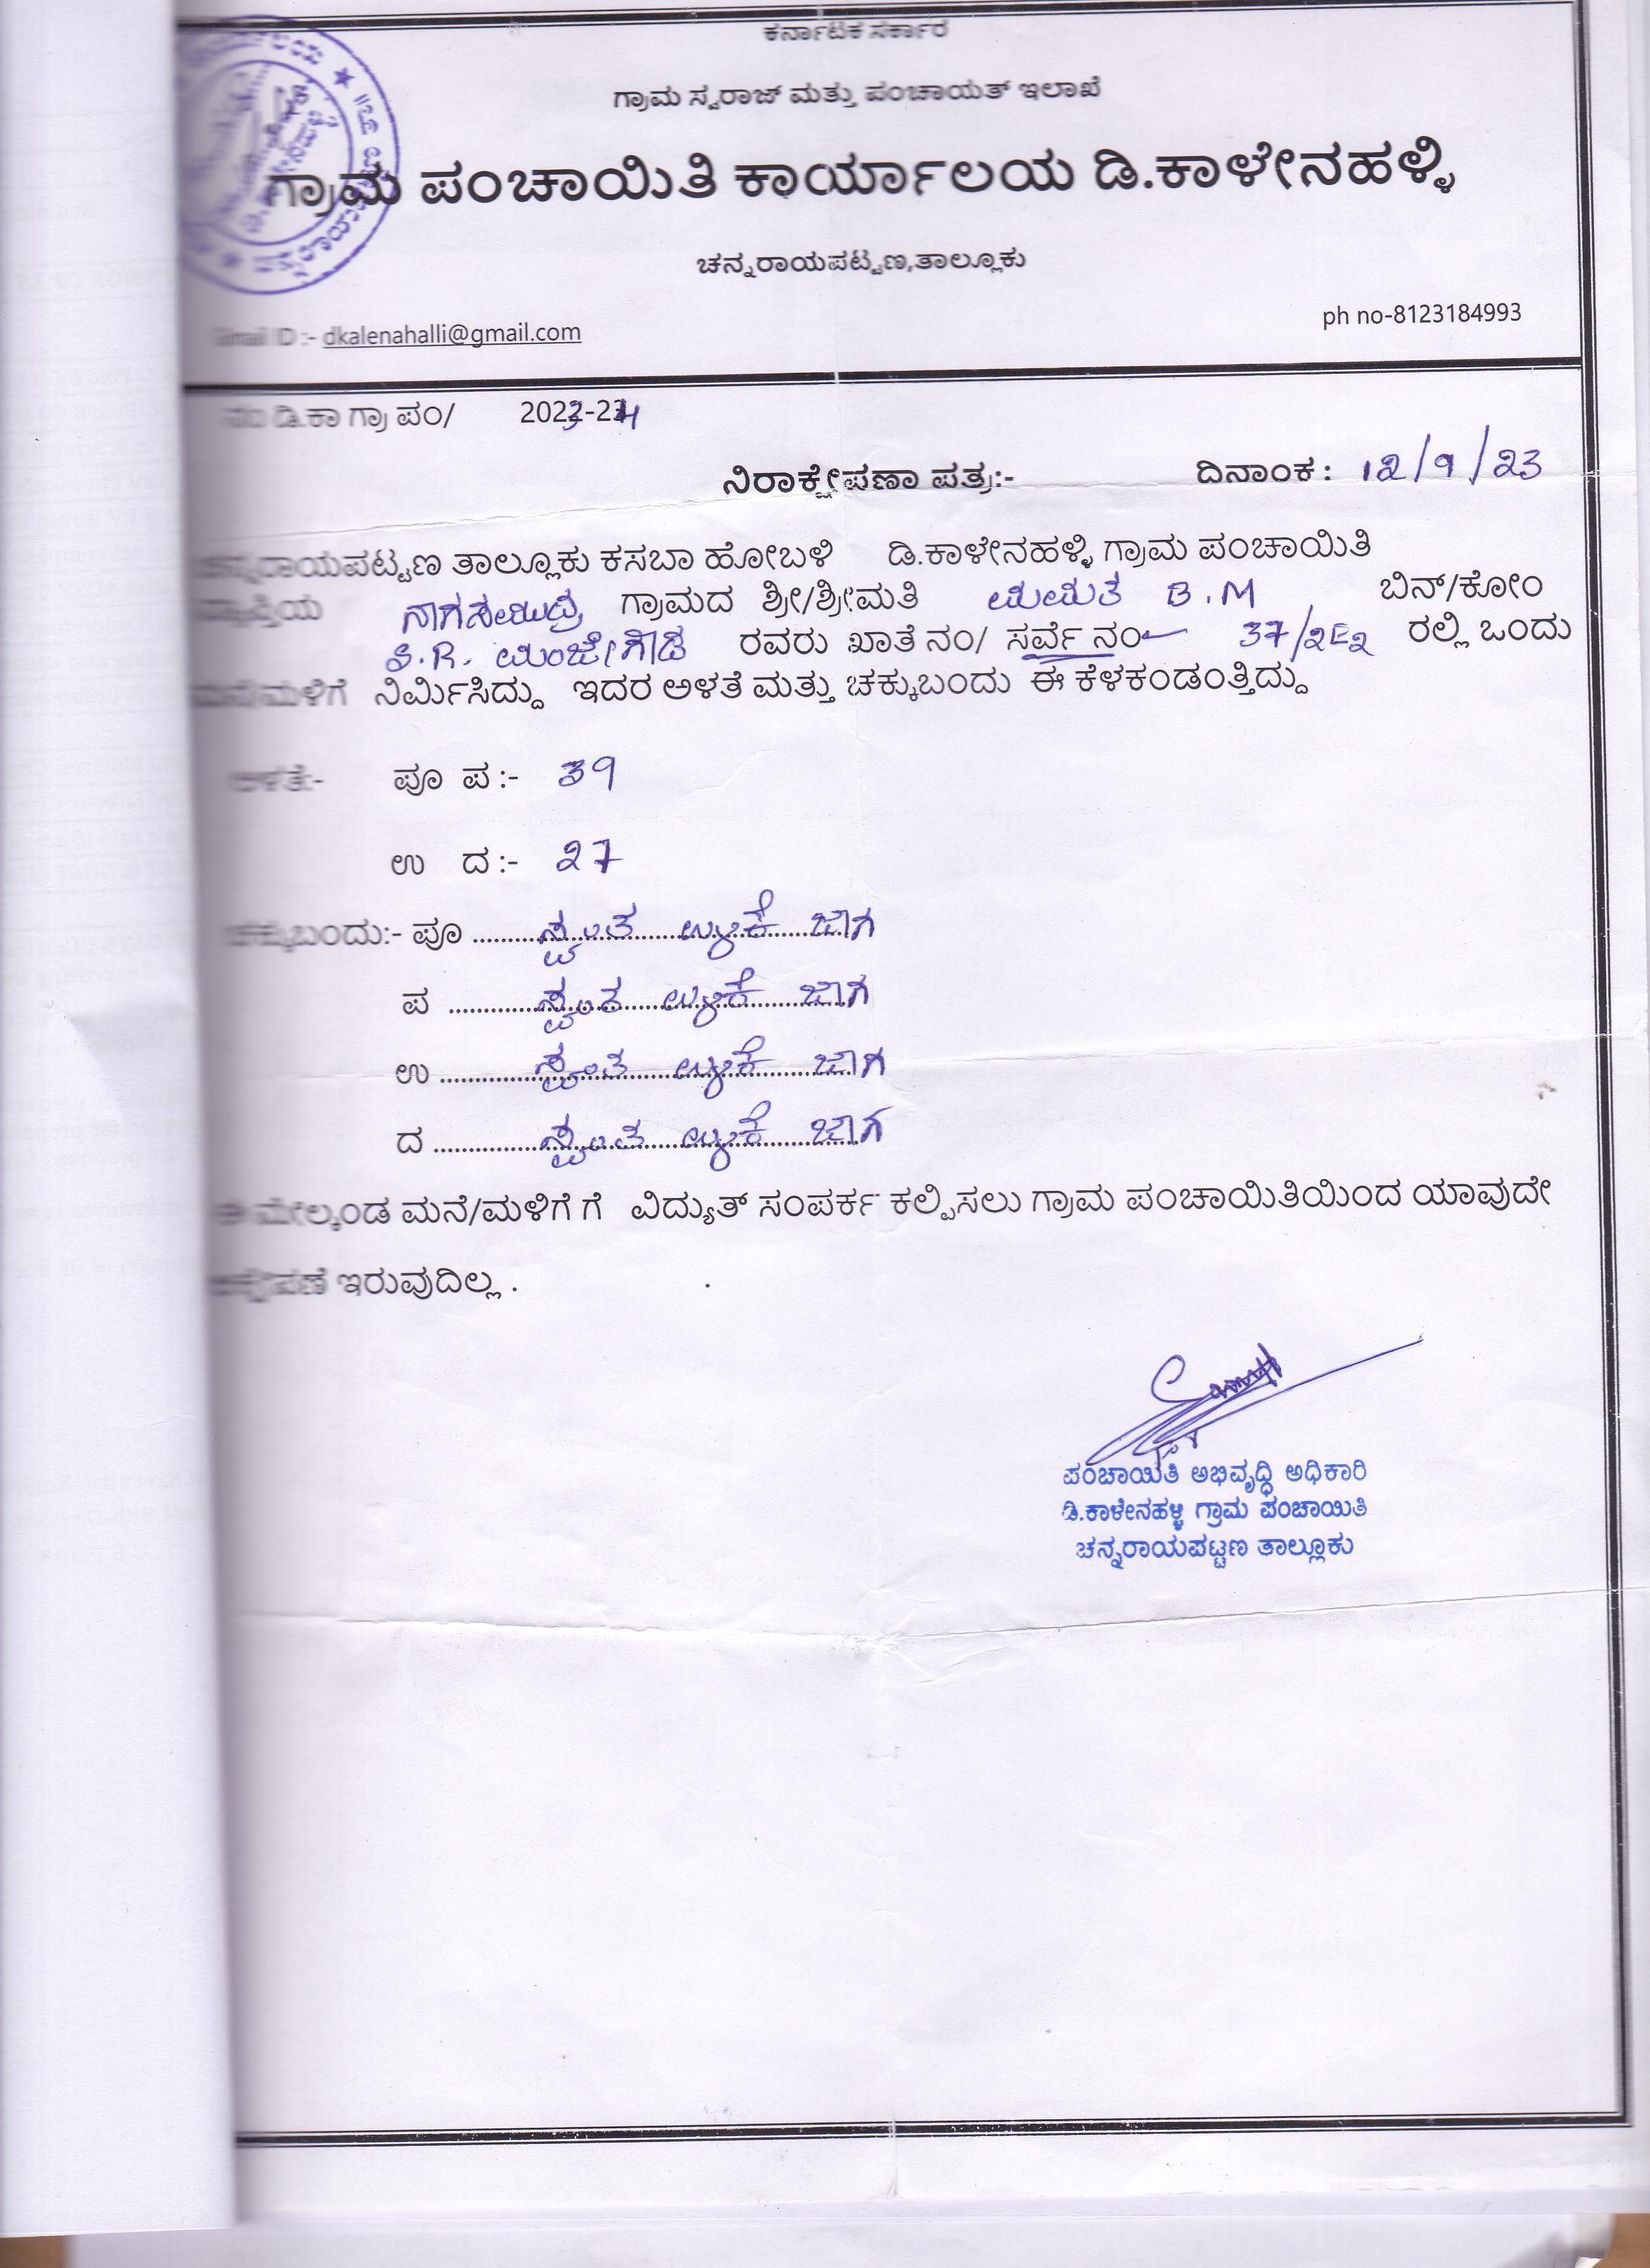 ಕರ್ನಾಟಕ ಸರ್ಕಾರ
ಗ್ರಾಮ ಸ್ವರಾಜ್ ಮತ್ತು ಪಂಚಾಯತ್ ಇಲಾಖೆ
ಗ್ರಾಮ ಪಂಚಾಯಿತಿ ಕಾರ್ಯಾಲಯ ಡಿ.ಕಾಳೇನಹಳ್ಳಿ
ಚನ್ನರಾಯಪಟ್ಟಣ,ತಾಲ್ಲೂಕು
ph no-8123184993
Gmail ID :- dkalenahalli@gmail.com
ನಂ ಡಿ.ಕಾ ಗ್ರಾ ಪಂ/ 2023-24
ನಿರಾಕ್ಷೇಪಣಾ ಪತ್ರ:- ದಿನಾಂಕ : 12/9/23
ಚನ್ನರಾಯಪಟ್ಟಣ ತಾಲ್ಲೂಕು ಕಸಬಾ ಹೋಬಳಿ ಡಿ.ಕಾಳೇನಹಳ್ಳಿ ಗ್ರಾಮ ಪಂಚಾಯಿತಿ
ವ್ಯಾಪ್ತಿಯ ನಾಗಸಮುದ್ರ ಗ್ರಾಮದ ಶ್ರೀ/ಶ್ರೀಮತಿ ಮಮತ B.M ಬಿನ್/ಕೋಂ
S.R. ಮಂಜೇಗೌಡ ರವರು ಖಾತೆ ನಂ/ ಸರ್ವೆ ನಂ 37/2E2 ರಲ್ಲಿ ಒಂದು
ಮನೆ/ಮಳಿಗೆ ನಿರ್ಮಿಸಿದ್ದು ಇದರ ಅಳತೆ ಮತ್ತು ಚಕ್ಕುಬಂದು ಈ ಕೆಳಕಂಡಂತ್ತಿದ್ದು
ಅಳತೆ:- ಪೂ ಪ :- 39
ಉ ದ :- 27
ಚಕ್ಕುಬಂದು:- ಪೂ ಸ್ವಂತ ಉಳಿಕೆ ಜಾಗ
ಪ ಸ್ವಂತ ಉಳಿಕೆ ಜಾಗ
ಉ ಸ್ವಂತ ಉಳಿಕೆ ಜಾಗ
ದ ಸ್ವಂತ ಉಳಿಕೆ ಜಾಗ
ಈ ಮೇಲ್ಕಂಡ ಮನೆ/ಮಳಿಗೆ ಗೆ ವಿದ್ಯುತ್ ಸಂಪರ್ಕ ಕಲ್ಪಿಸಲು ಗ್ರಾಮ ಪಂಚಾಯಿತಿಯಿಂದ ಯಾವುದೇ
ಆಕ್ಷೇಪಣೆ ಇರುವುದಿಲ್ಲ .
ಪಂಚಾಯಿತಿ ಅಭಿವೃದ್ಧಿ ಅಧಿಕಾರಿ
ಡಿ.ಕಾಳೇನಹಳ್ಳಿ ಗ್ರಾಮ ಪಂಚಾಯಿತಿ
ಚನ್ನರಾಯಪಟ್ಟಣ ತಾಲ್ಲೂಕು